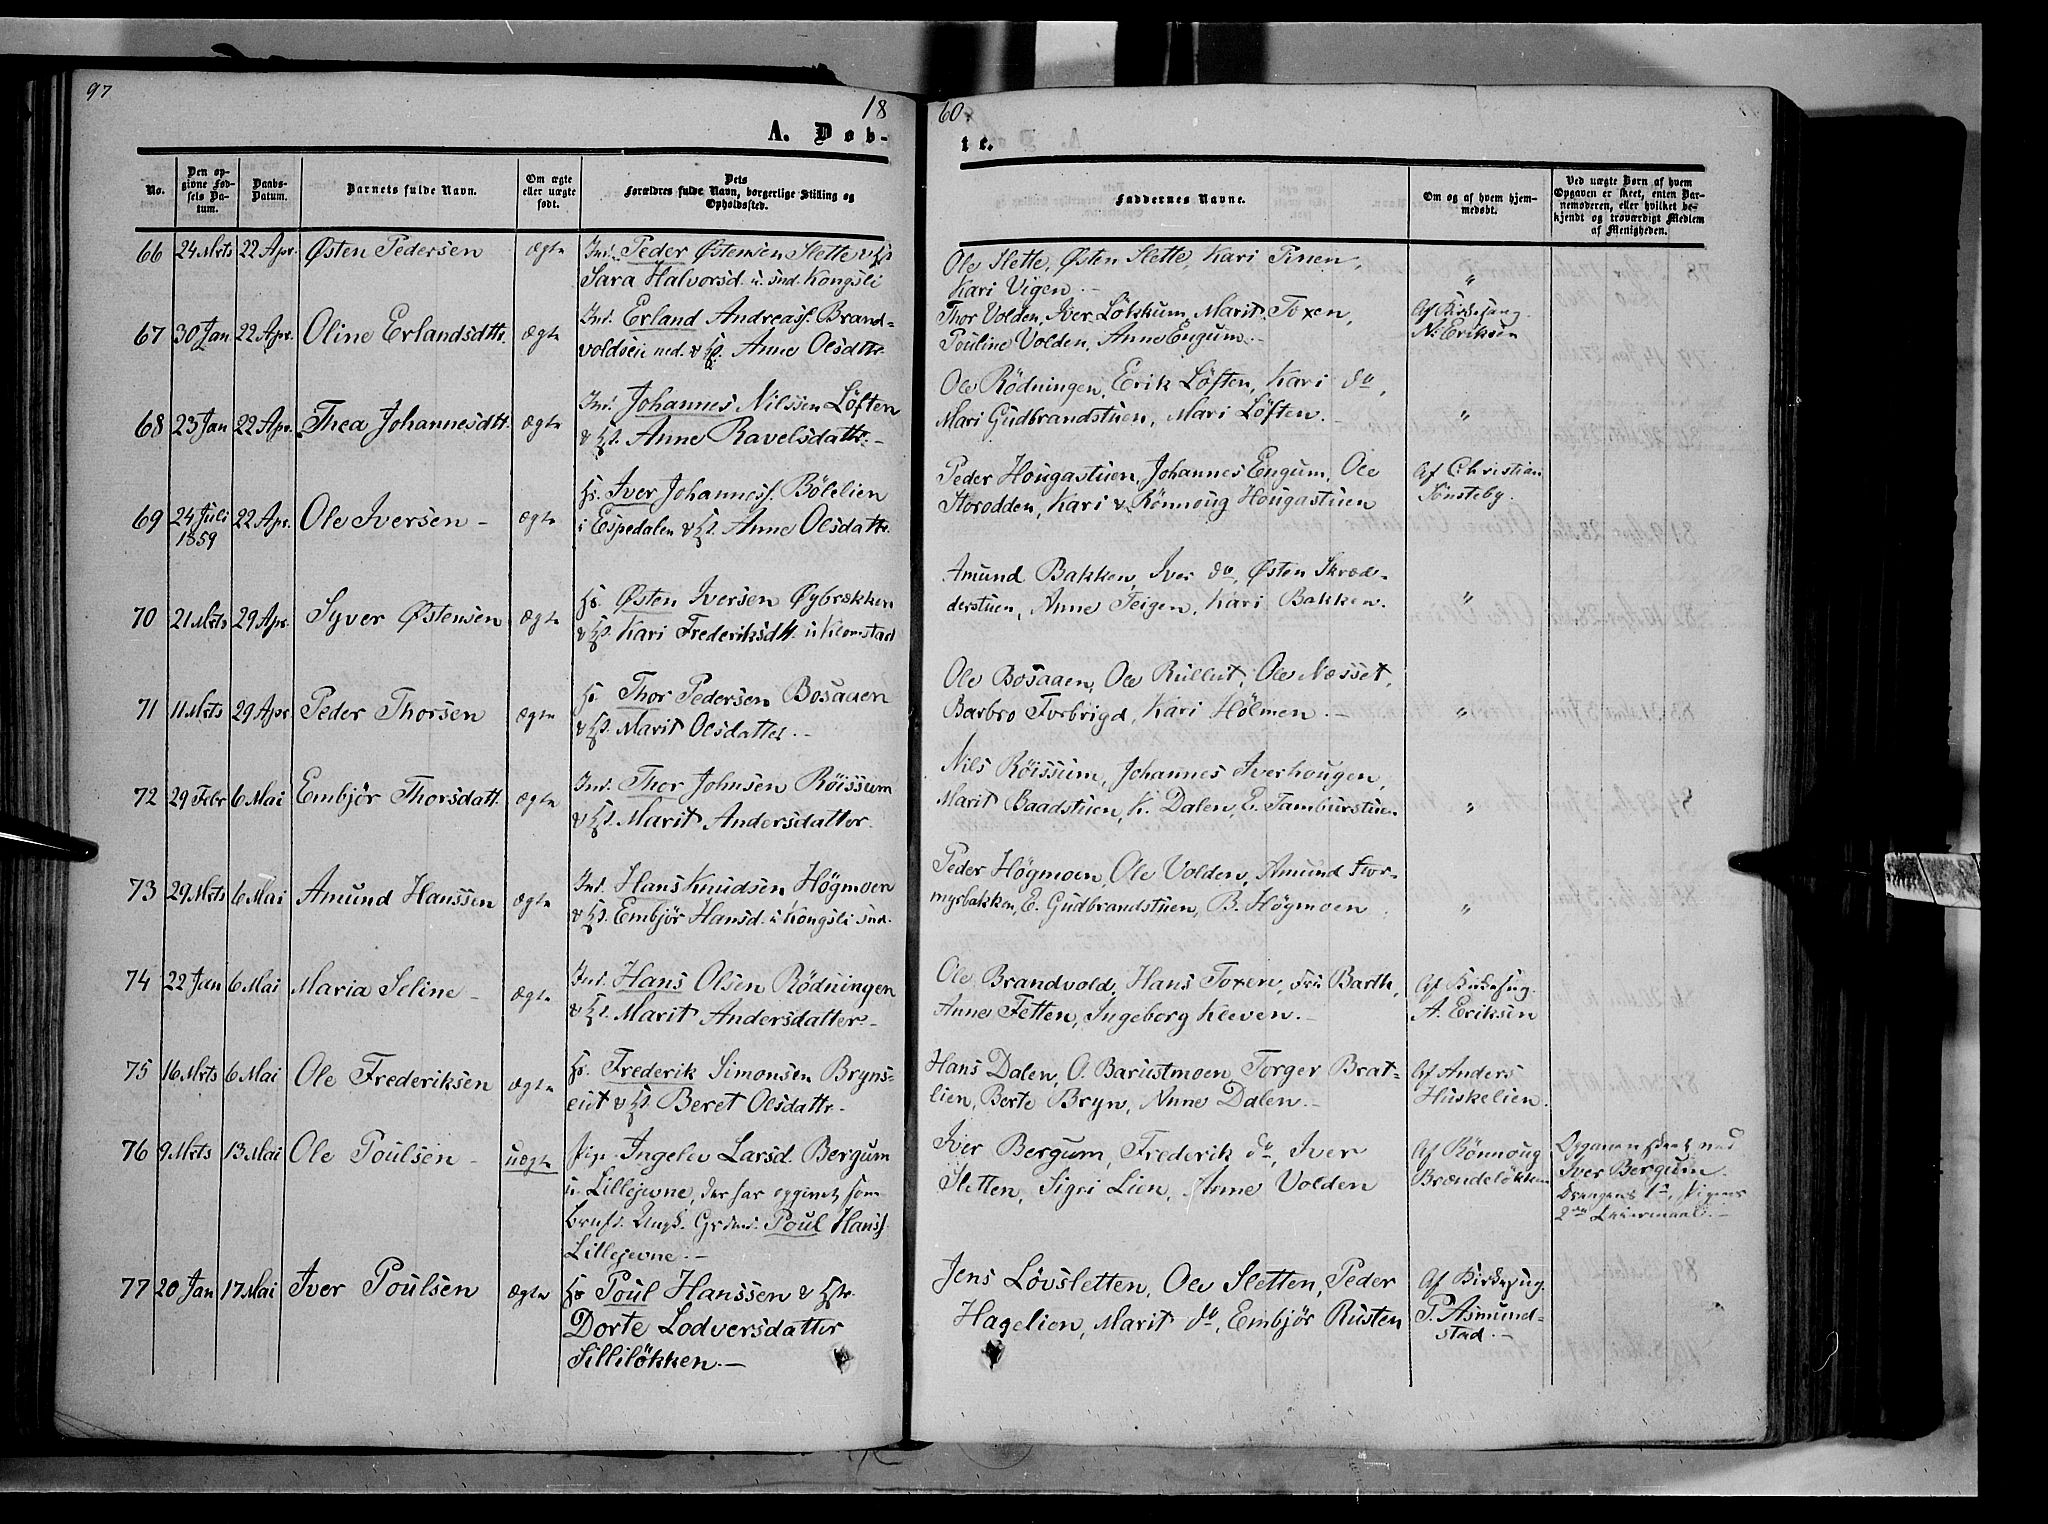 97
18
60.
A. Døb-
te.
No.
Den op-
givne Fød-
sels Da-
tum.
Daabs-
Datum.
Barnets fulde Navn.
Om ægte
eller uægte
født.
Dets
Forældres fulde Navn, borgerlige Stilling og
Opholdssted.
Faddernes Navne.
Om og af hvem hjem-
medøbt.
Ved uægte Børn af hvem
Opgaven er skeet, enten Bar-
nemoderen, eller hvilket be-
kjendt og troværdigt Medlem
af Menigheden.
66 24 Mrts 22 Apr. Østen Pedersen ægte
Ind. Peder Østensen Slette & H
Sara Halvorsd. u. snd. Kongsli
Ole Slette, Østen Slette, Kari
Kari Vigen. — "
67 30 Jan 22 Apr. Oline Erlandsdttr. ægte
Ind. Erland Andreass. Brand-
voldseie ned. & H. Anne Olsdttr.
Thor Volden, Iver Lötskum, Marit Toxen,
Pouline Volden, Anne Engum. —
Af Kirkesang.
N. Eriksen
68 23 Jan 22 Apr. Thea Johannesdtt. ægte
Ind. Johannes Nilssen Löften
& H. Anne Ravelsdattr. —
Ole Rödningen, Erik Löften, Kari do,
Mari Gudbrandstuen, Mari Löften. — "
69 24 Juli 22 Apr. Ole Iversen — ægte
1859
Hs. Iver Johanness. Bölelien
i Espedalen & H. Anne Olsdattr.
Peder Hougastuen, Johannes Engum, Ole
Storodden, Kari & Rönnoug Hougastuen
Af Christian
Tonsteby.
70 21 Mrts 29 Apr. Syver Østensen ægte
Hs. Østen Iversen Øybrækken
& H. Kari Frederiksdtt. u. Klomstad
Amund Bakken, Iver do, Østen Skræd-
derstuen, Anne Teigen, Kari Bakken. "
71 11 Mrts 29 Apr Peder Thorsen ægte
Hs Thor Pedersen Bosaaen
& H. Marit Olsdatter. —
Ole Bosaaen, Ole Rullut, Ole Næsset,
Barbro Torbrigd, Kari Hölmen. — "
72 29 Febr 6 Mai Embjör Thorsdatt. ægte
Ind. Thor Johnsen Röissum
& H. Marit Andersdatter.
Nils Röissum, Johannes Iverhougen,
Marit Baadstuen, K. Dalen, E. Tamburstuen "
73 29 Mrts 6 Mai Amund Hanssen ægte
Ind. Hans Knudsen Högmoen
& H. Embjör Hansd. u. Kongsli snd.
Peder Högmoen, Ole Volden, Amund Stor-
myrbakken, E. Gudbrandstuen, B. Högmoen "
74 22 Jan 6 Mai Maria Seline — ægte
Ind. Hans Olsen Rödningen
& H. Marit Andersdatter —
Ole Brandvold, Hans Toxen, Fru Barth,
Anne Fetten, Ingeborg Kleven. —
Af Kirkesng.
A. Eriksen
75 16 Mrts 6 Mai Ole Frederiksen ægte
Hs. Frederik Simonsen Bryns-
eiet & H. Beret Olsdattr. —
Hans Dalen, O. Barustmoen, Torger Brat-
lien, Berte Bryn, Anne Dalen. —
Af Anders
Huskelien.
76 9 Mrts 13 Mai Ole Poulsen — uægte
Pige Ingeleu Larsd. Bergum
u. Lillejevne, der har opgivet som
Barnf. Ungk. Poul Hanss.
Lillejevne. —
Iver Bergum, Frederik do, Iver
Sletten, Sigri Lien, Anne Volden
Af Rönnoug
Brændelökken
Opgaven skeet ved
Iver Bergum.
Drengens 1ste, Pigens
2den Leiermaal. —
77 20 Jan 17 Mai Iver Poulsen ægte
Hs Poul Hanssen & Hstr.
Dorte Lodversdatter
Silliløkken. —
Jens Lövsletten, Ole Sletten, Peder
Hagelien, Marit do, Embjör Rusten
Af Kirkesng.
P. Asmund-
stad. —